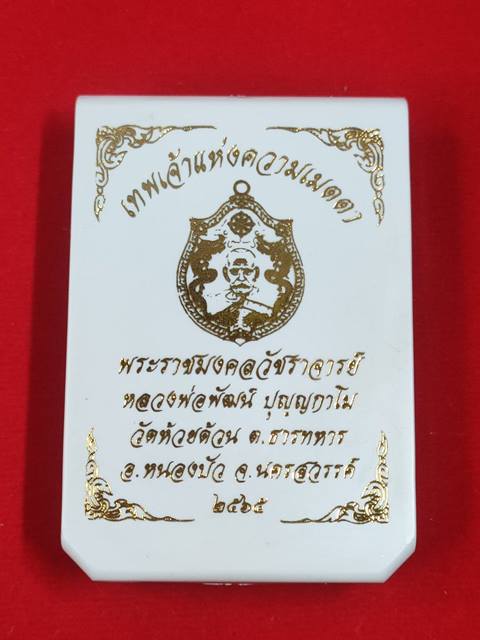 เทพเจ้าแห่งความเมตตา
พระราชมงคลวัชราจารย์
หลวงพ่อพัฒน์ ปุญฺญกาโม
วัดห้วยด้วน ต.ธารทหาร
อ.หนองบัว จ.นครสวรรค์
๒๕๖๕